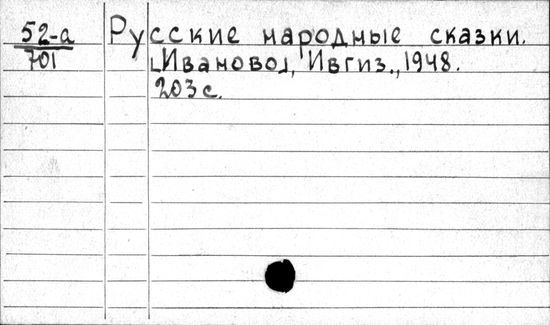 52-а
701
Русские народные сказки.
[Иваново], Ивгиз., 1948.
203 с.